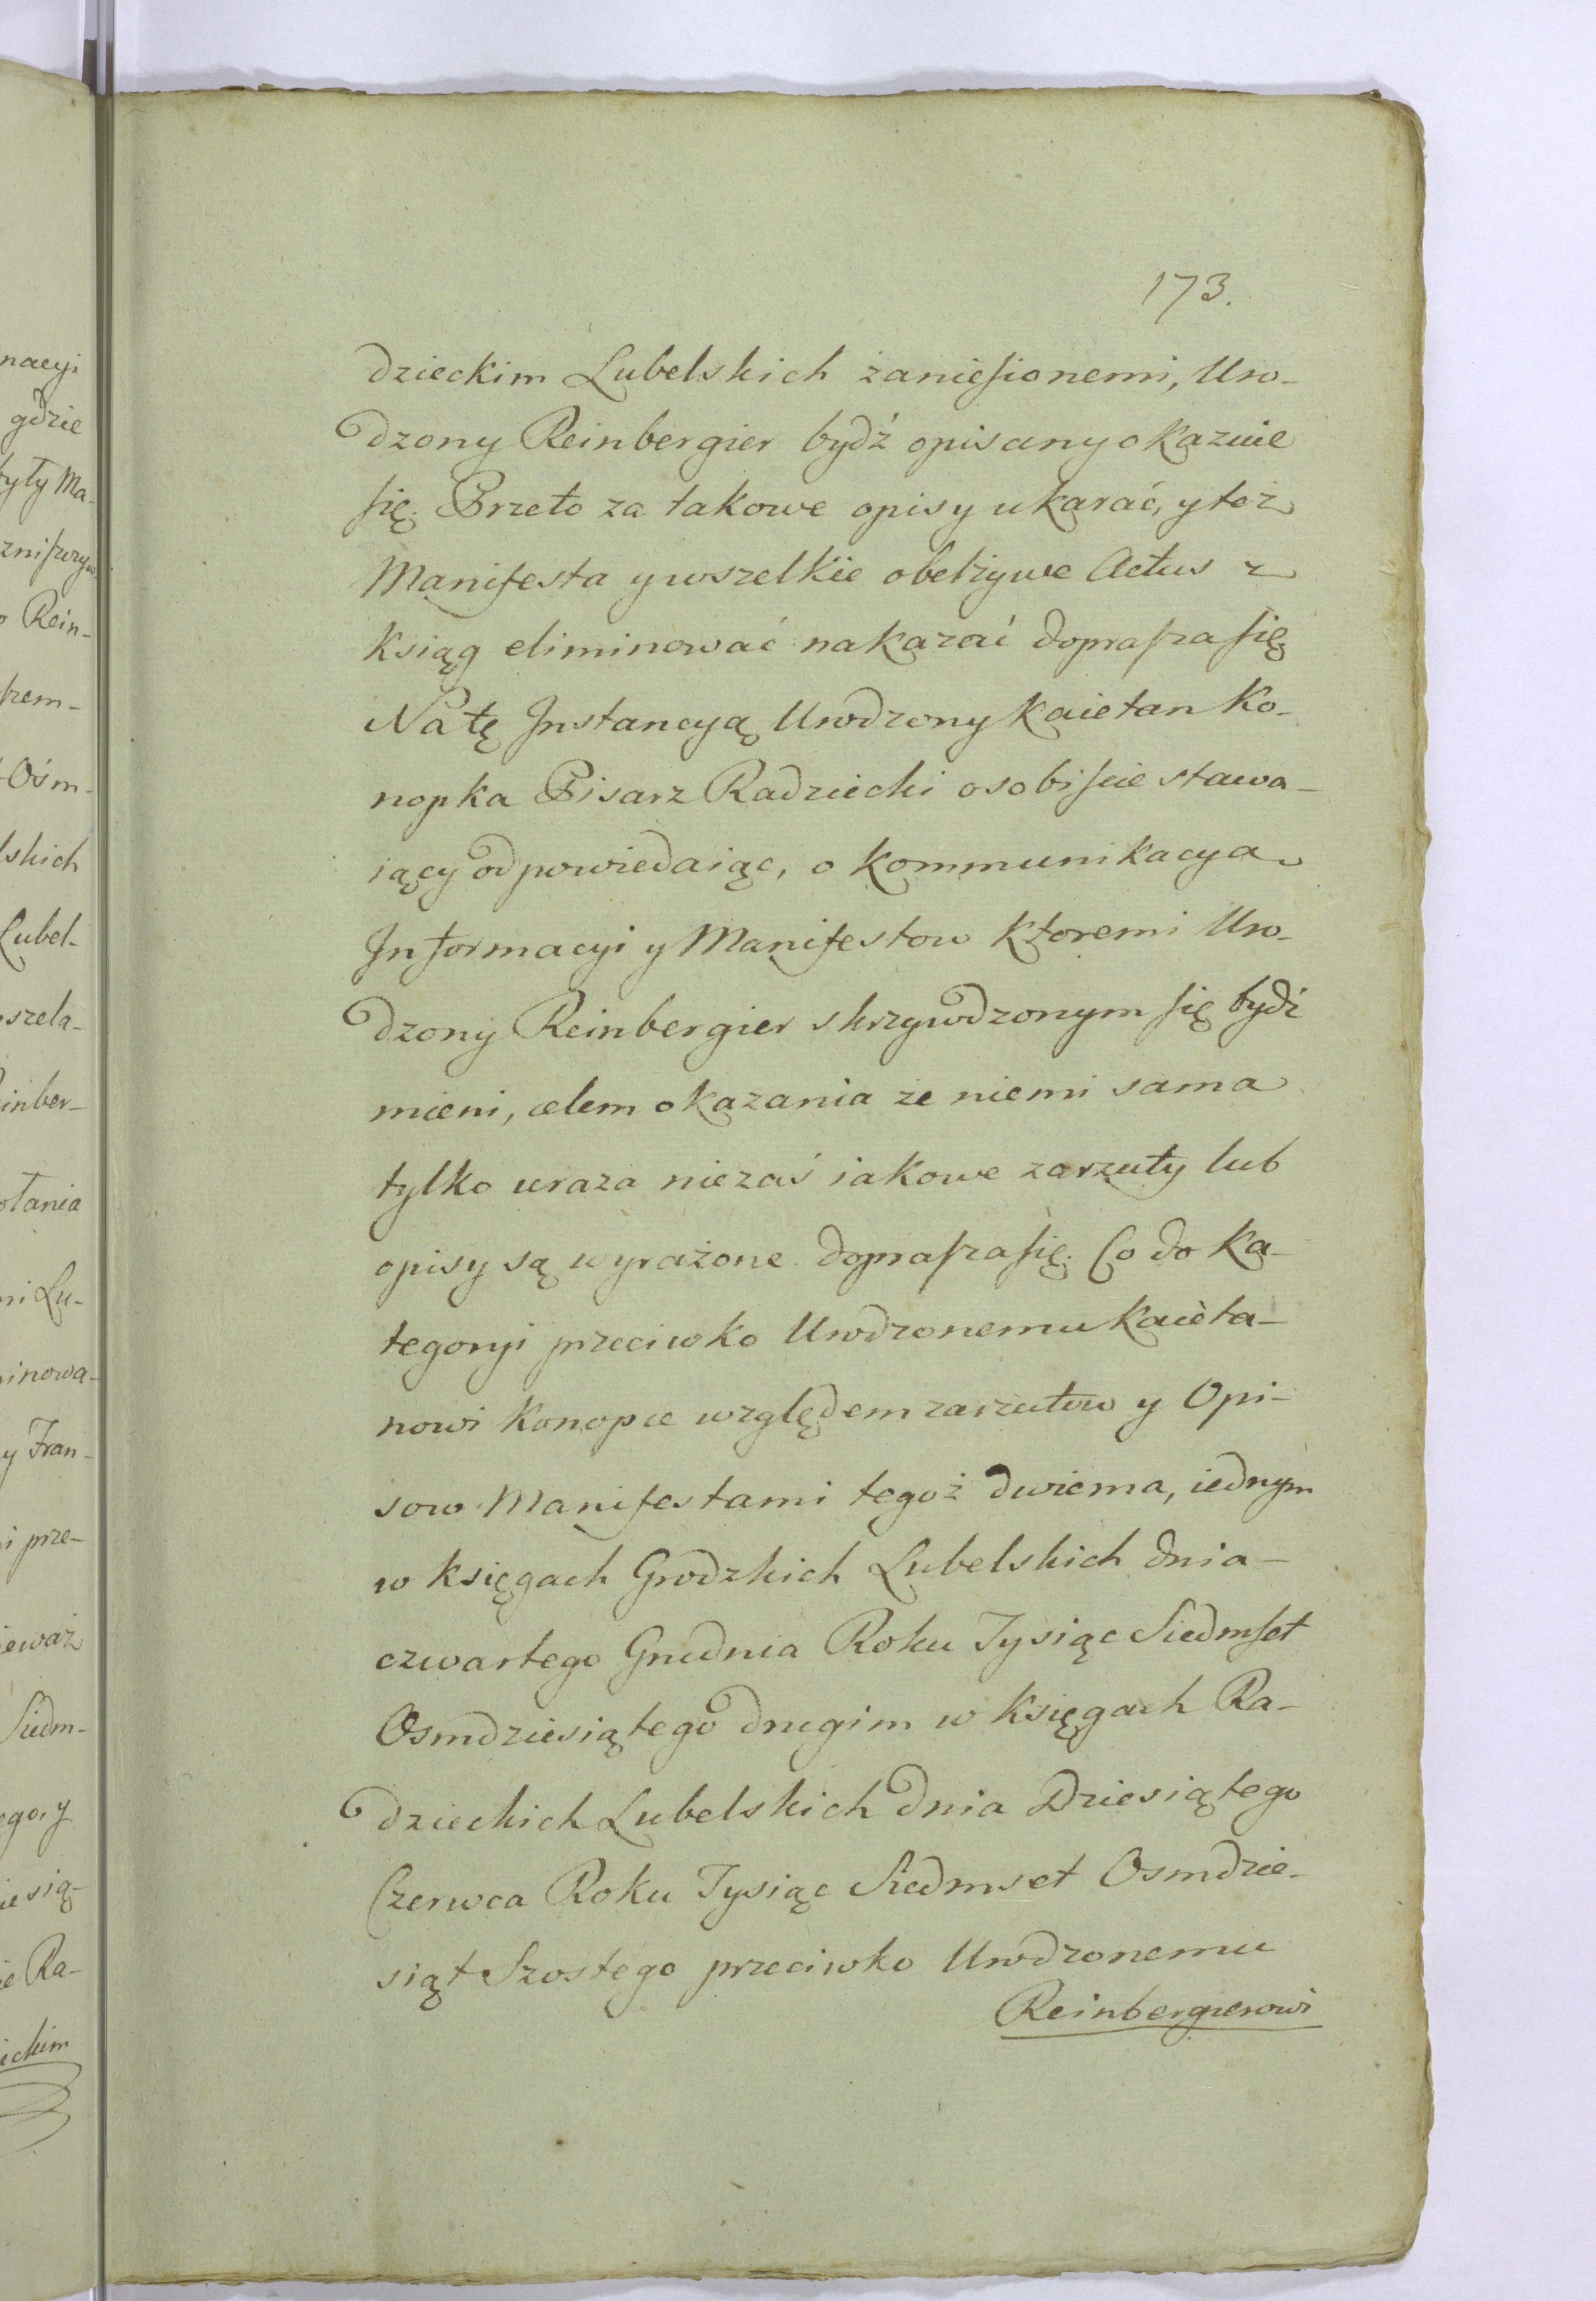 173.
dzieckim Lubelskich zaniesionemi, Uro-
dzony Reinbergier bydź opisany okazuie
się. Przeto za takowe opisy ukarać, y też
Manifesta y wszelkie obelżywe Actus z
Ksiąg eliminować nakazać doprasza się
Na tę Instancyą Urodzony Kaietan Ko-
nopka Pisarz Radziecki osobiscie stawa-
iący odpowiedaiąc, o Kommunikacya
Informacyi y Manifestow Ktoremi Uro-
dzony Reinbergier skrzywdzonym się bydź
mieni, celem okazania ze niemi sama
tylko uraza niezaś iakowe zarzuty lub
opisy są wyrażone doprasza się. Co do Ka-
tegoryi przeciwko Urodzonemu Kaieta-
nowi Konopce względem zarzutow y Opi-
sow Manifestami tegoż dwiema, iednym
w Księgach Grodzkich Lubelskich dnia-
czwartego Grudnia Roku Tysiąc Siedmset
Osmdziesiątego drugim w Księgach Ra-
dzieckich Lubelskich dnia Dziesiątego
Czerwca Roku Tysiąc Siedmset Osmdzie-
siąt Szostego przeciwko Urodzonemu
Reinbergierowi
nacyi
gdzie
były Ma-
Rein-
Ośm-
lskich
Lubel-
szela-
inber-
ołania
ni Lu-
inowa-
y Fran-
i prze-
ieważ
Siedm-
ego, y
iesią-
ie Ra-
eckim